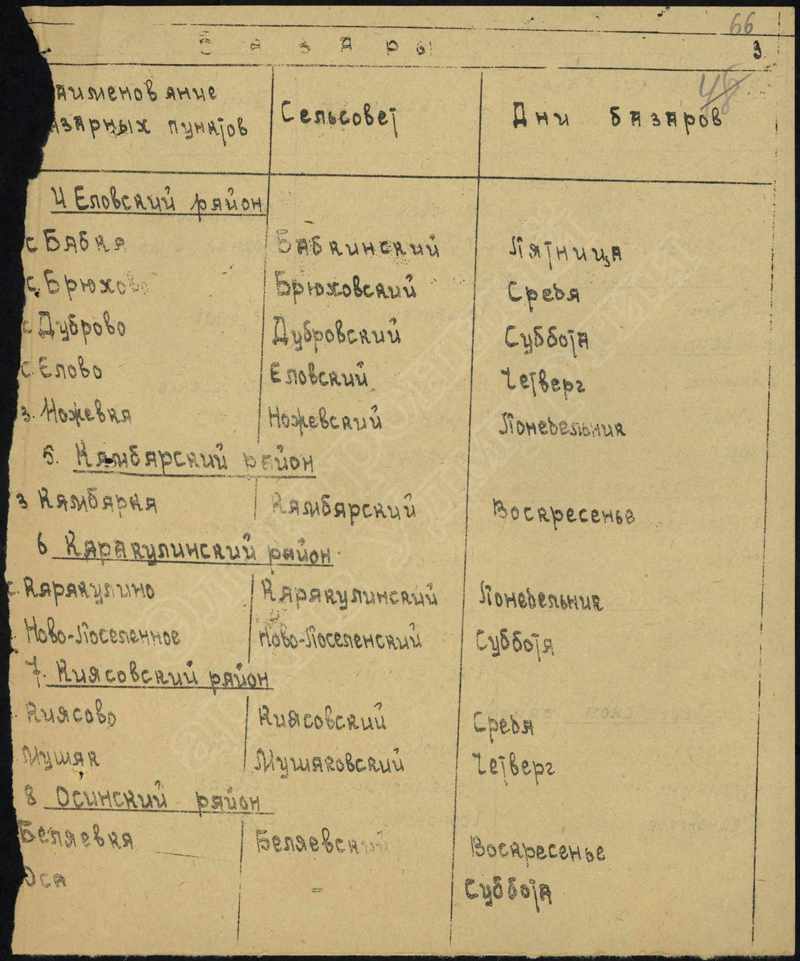 66
Базары
3
48
аименование
азарных пунктов Сельсовет Дни базаров
4 Еловский район
с Бабка Бабкинский Пятница
с. Брюхово Брюховский Среда
с Дуброво Дубровский Суббота
с. Елово Еловский Четверг
з. Ножевка Ножевский Понедельник
5. Камбарский район
з Камбарка Камбарский Воскресенье
6 Каракулинский район
с. Каракулино Каракулинский Понедельник
Ново-Поселенное Ново-Поселенский Суббота
7. Киясовский район
Киясово Киясовский Среда
Мушак Мушаковский Четверг
8 Осинский район
Беляевка Беляевский Воскресенье
Оса = Суббота